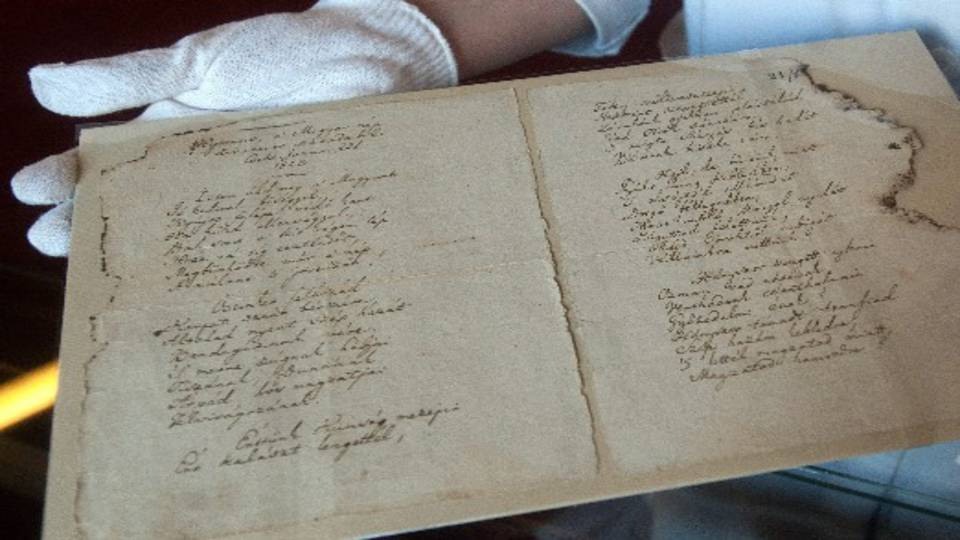 Hymnus, a' Magyar nép
zivataros századaiból
Cseke, Januar. 22d
1823
Isten áldd meg a' Magyart
Jó kedvvel, bőséggel,
Nyujts feléje védő kart,
Ha küzd ellenséggel;
Bal sors a' kit régen tép,
Hozz rá víg esztendőt,
Megbűnhődte már e' nép
A' multat 's jövendőt!
Őseinket felhozád
Kárpát szent bérczére,
Általad nyert szép hazát
Bendegúznak vére.
'S merre zúgnak habjai
Tiszának, Dunának,
Árpád hős magzatjai
Felvirágozának.
Értünk Kunság mezein
Ért kalászt lengettél,
Tokaj szőlővesszein
Nektárt csepegtettél.
Zászlónk gyakran plántálád
Vad Török sánczára,
'S nyögte Mátyás bús hadát
Bécsnek büszke vára.
Hajh, de bűneink miatt
Gyúlt harag kebledben,
'S elsújtád villámidat
Dörgő fellegedben,
Most rabló Mongol nyilát
Zúgattad felettünk,
Majd Töröktől rabigát
Vállainkra vettünk.
Hányszor zengett ajkain
Ozman vad népének
Vert hadunk csonthalmain
Győzedelmi ének!
Hányszor támadt tenfiad
Szép hazám kebledre,
'S lettél magzatod miatt
Magzatod hamvvedre